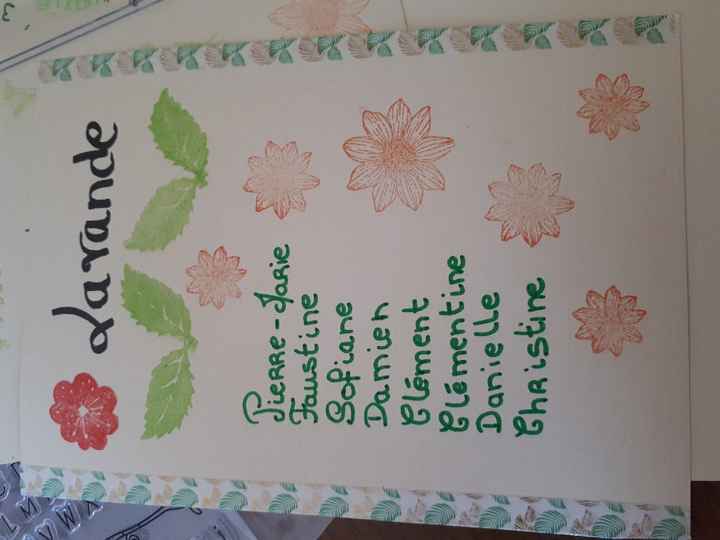 Lavande
Pierre-Marie
Faustine
Sofiane
Damien
Clément
Clémentine
Danielle
Christine